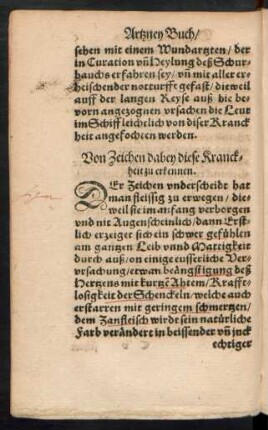 Artzney Buch/
sehen mit einem Wundartzten/ der
in Curation vñ Heylung deß Schur-
bauchs erfahren sey/ vñ mit aller er-
heischender notturfft gefast/ dieweil
auff der langen Reyse auß hie be-
vorn angezognen vrsachen die Leut
im Schiff leichtlich von diser Kranck
heit angefochten werden.
Von Zeichen dabey diese Kranck-
heit zu erkennen.
DEr Zeichen vnderscheidt hat
man fleissig zu erwegen/ die-
weil sie im anfang verborgen
vnd nit Augenscheinlich/ dann Erst-
lich erzeiget sich ein schwer gefühlen
am gantzen Leib vnnd Mattigkeit
durch auß/ on einige eusserliche Ver-
vrsachung/ etwan beängstigung deß
Hertzens mit kurtzē Ahtem/ Krafft-
losigkeit der Schenckeln/ welche auch
erstarren mit geringem schmertzen/
dem Zanfleisch wirdt sein natürliche
Farb verändert in beissender vñ juck
echtiger